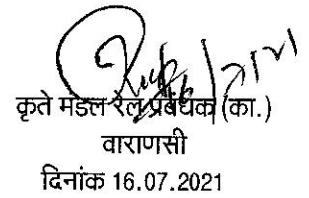 कृते मंडल रेल प्रबंधक (का.)
वाराणसी
दिनांक 16.07.2021